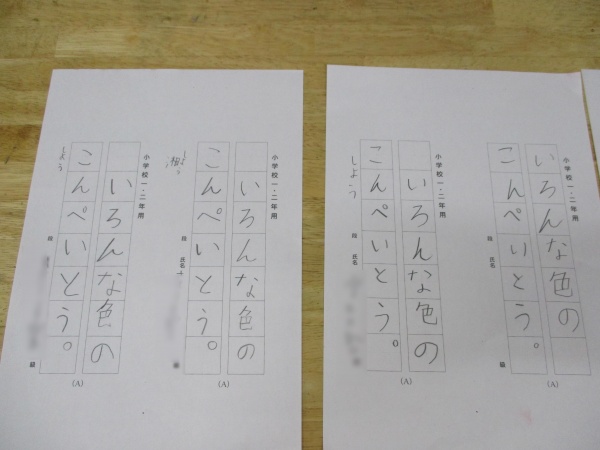 小学校一・二年用
いろんな色の
こんぺいとう。
段
氏名
級
(A)
小学校一・二年用
いろんな色の
こんぺいとう。
しよう
段
氏名
(A)
小学校一・二年用
いろんな色の
こんぺいとう。
段
氏名
(A)
小学校一・二年用
いろんな色の
こんぺいとう。
しよう
段
級
(A)